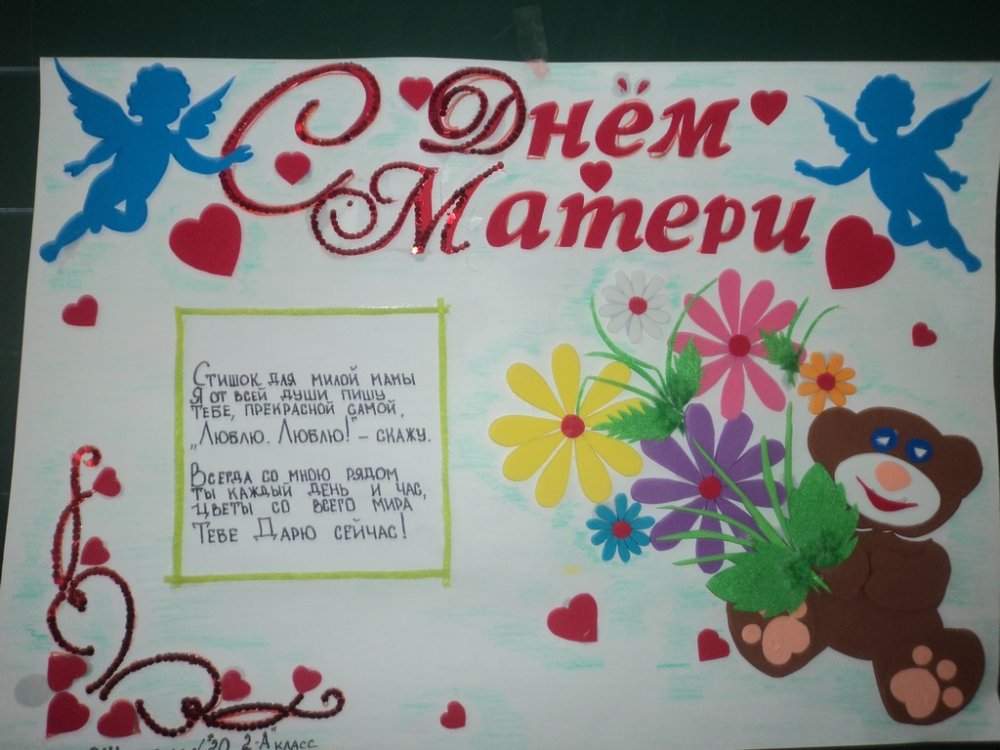 С Днём
Матери
Стишок для милой мамы
Я от всей души пишу
Тебе, прекрасной самой,
„Люблю. Люблю!" – скажу.
Всегда со мною рядом
Ты каждый день и час,
Цветы со всего мира
Тебе Дарю сейчас!
20 2-А класс